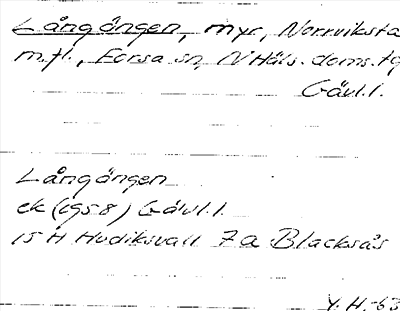 Långängen, myr, Norrviksta
m.fl., Forsa sn, N Häls. doms. tg
Gävl.l.
Långängen
ek (1958) Gävl.l.
15 H Hudiksvall 7a Blacksås
Y. H. -63